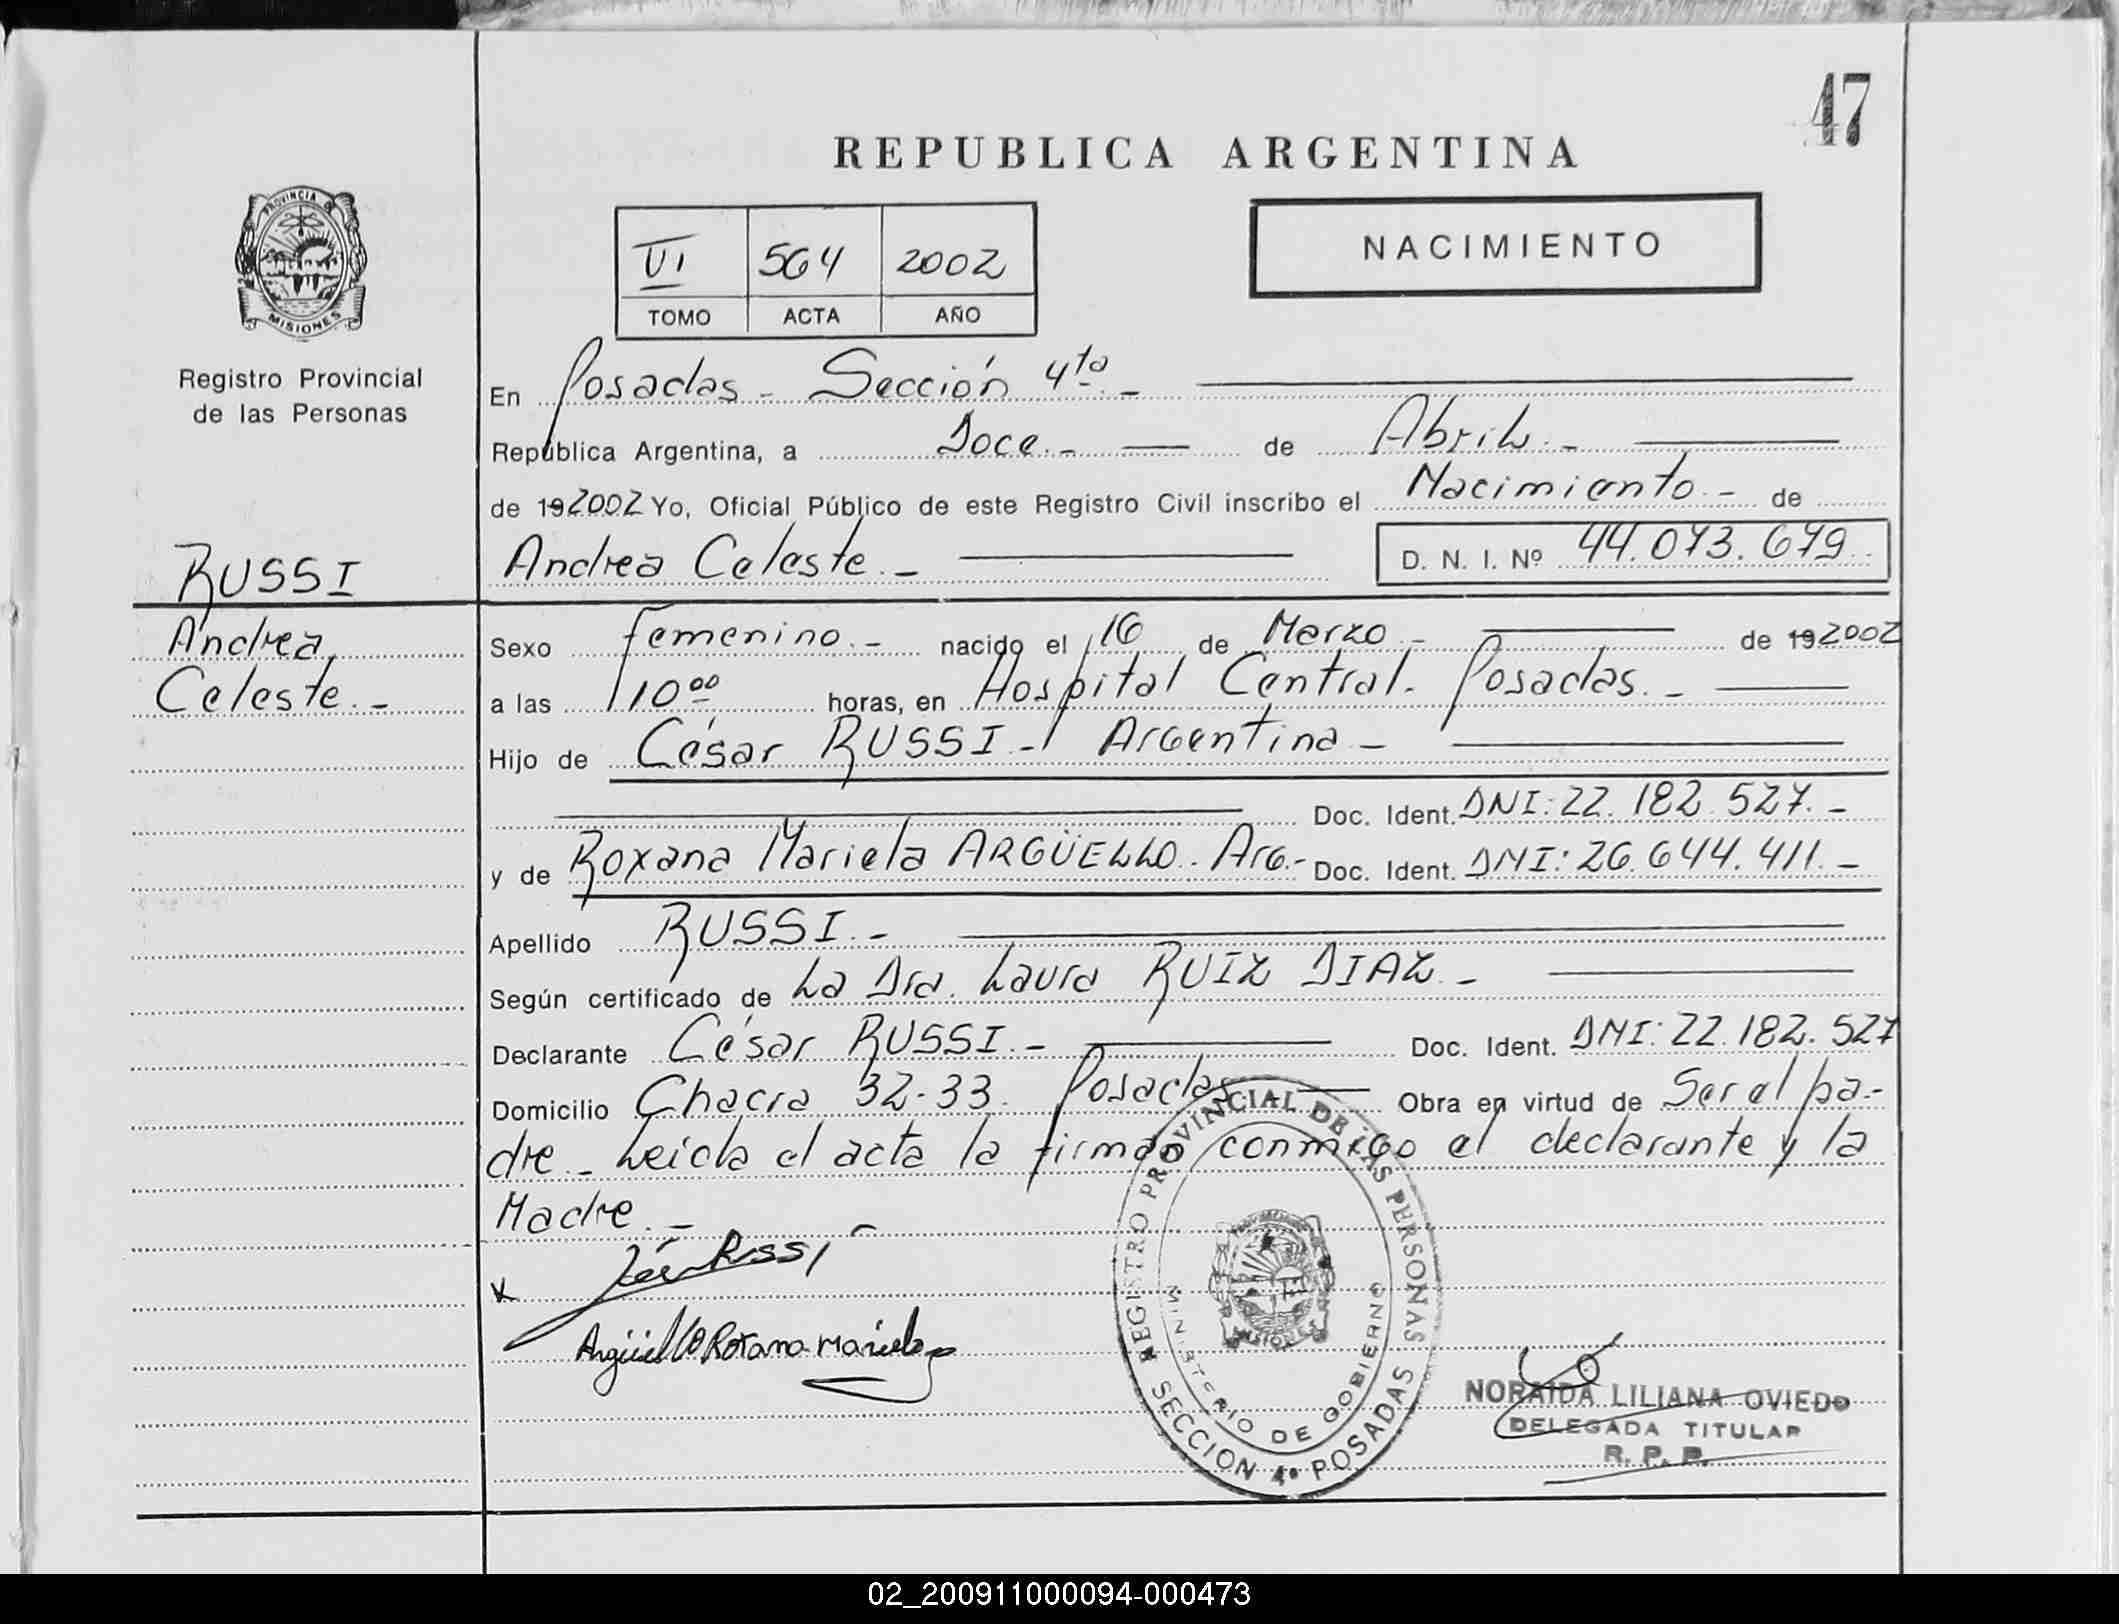 47
REPUBLICA ARGENTINA
PROVINCIA DE
MISIONES
VI 564 2002
TOMO ACTA AÑO
NACIMIENTO
Registro Provincial
de las Personas
En Posadas - Sección 4ta. -
República Argentina, a Doce. - de Abril. -
de 192002 Yo, Oficial Público de este Registro Civil inscribo el Nacimiento. - de
Andrea Celeste. - D. N. I. Nº 44.073.679
RUSSI
Andrea
Celeste. -
Sexo femenino. - nacido el 16 de Marzo. - de 192002
a las 10 00 horas, en Hospital Central. Posadas. -
Hijo de César RUSSI - Argentina -
Doc. Ident. DNI: 22.182.527. -
y de Roxana Mariela ARGÜELLO. Arg. - Doc. Ident. DNI: 26.644.411. -
Apellido RUSSI. -
Según certificado de La Dra. Laura RUIZ DIAZ. -
Declarante César RUSSI. - Doc. Ident. DNI: 22.182.527
Domicilio Chacra 32-33. Posadas Obra en virtud de Ser el pa-
dre. - Leida el acta la firman conmigo el declarante y la
Madre. -
x Russi
Argüello Roxana Mariela
REGISTRO PROVINCIAL DE LAS PERSONAS
MINISTERIO DE GOBIERNO
MISIONES
SECCION 4ª POSADAS
NORAIDA LILIANA OVIEDO
DELEGADA TITULAR
R. P. P.
02_200911000094-000473